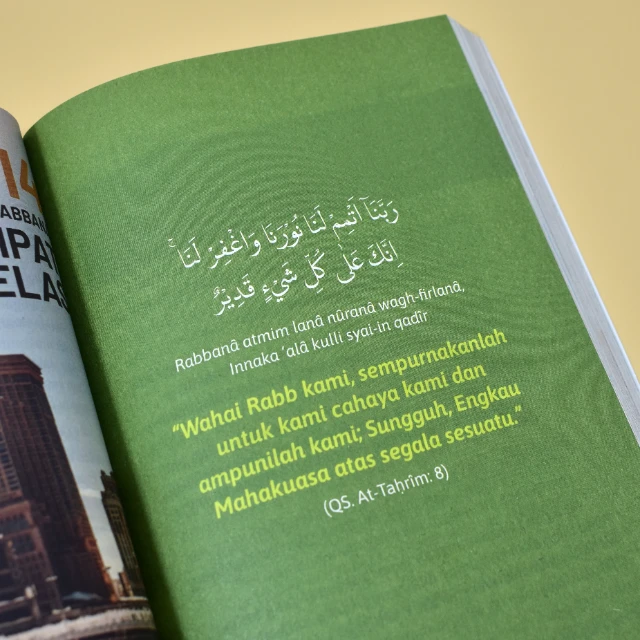 14
رَبَّنَآ اَتْمِمْ لَنَا نُوْرَنَا وَاغْفِرْ لَنَاۚ
اِنَّكَ عَلٰى كُلِّ شَيْءٍ قَدِيْرٌ
Rabbanâ atmim lanâ nûranâ wagh-firlanâ,
Innaka ‘alâ kulli syai-in qadîr
“Wahai Rabb kami, sempurnakanlah
untuk kami cahaya kami dan
ampunilah kami; Sungguh, Engkau
Mahakuasa atas segala sesuatu.”
(QS. At-Taḥrîm: 8)